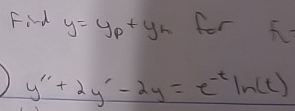 Find y = yp + yh for
) y'' + 2y' - 2y = e^-t ln(t)